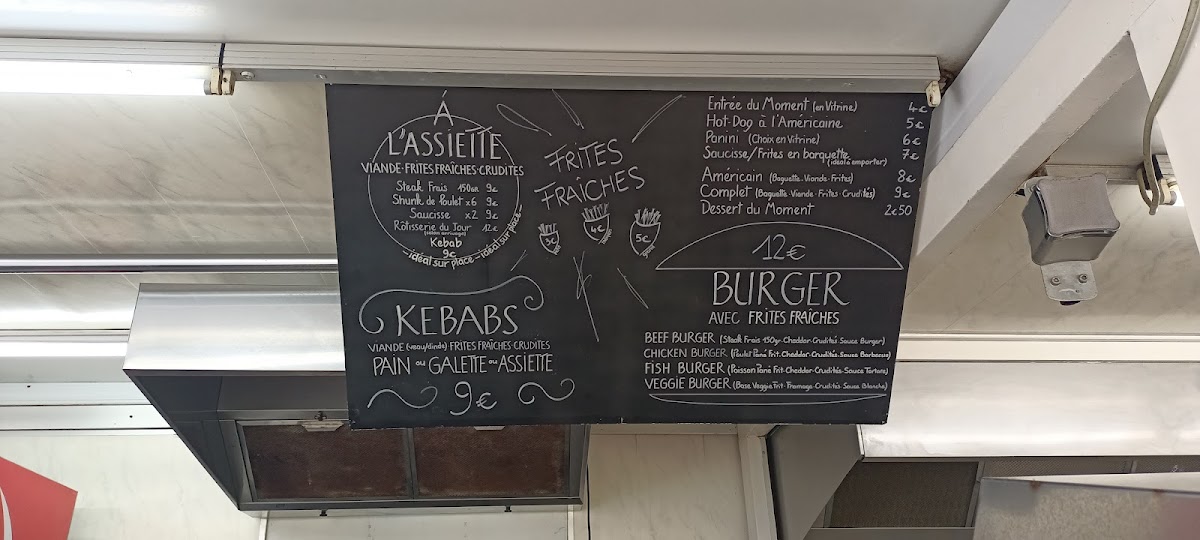 À
L'ASSIETTE
VIANDE·FRITES FRAÎCHES·CRUDITES
Steak Frais 150gr 9€
Shunk de Poulet x6 9€
Saucisse x2 9€
Rôtisserie du Jour 12€
(selon arrivage)
Kebab
9€
–idéal sur place–idéal sur place–
KEBABS
VIANDE (veau/dinde) FRITES FRAÎCHES·CRUDITES
PAIN ou GALETTE ou ASSIETTE
9€
FRITES
FRAÎCHES
3€
4€
5€
Entrée du Moment (en Vitrine) 4€
Hot-Dog à l'Américaine 5€
Panini (Choix en Vitrine) 6€
Saucisse/Frites en barquette 7€
(idéal à emporter)
Américain (Baguette·Viande·Frites) 8€
Complet (Baguette·Viande·Frites·Crudités) 9€
Dessert du Moment 2€50
12€
BURGER
AVEC FRITES FRAÎCHES
BEEF BURGER (Steak Frais 150gr·Cheddar·Crudités·Sauce Burger)
CHICKEN BURGER (Poulet Pané Frit·Cheddar·Crudités·Sauce Barbecue)
FISH BURGER (Poisson Pané Frit·Cheddar·Crudités·Sauce Tartare)
VEGGIE BURGER (Base Veggie Frit·Fromage·Crudités·Sauce Blanche)